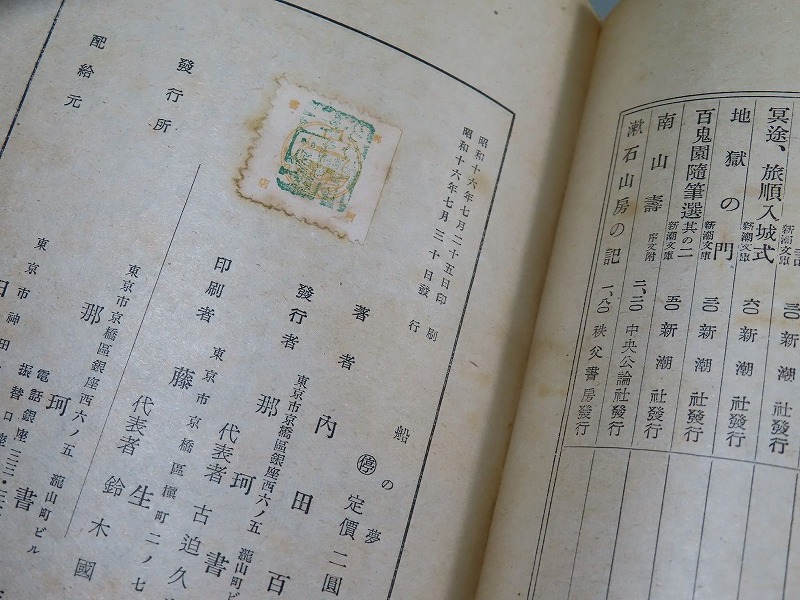 冥途、旅順入城式 新潮文庫 ・三〇 新潮社發行
地獄の門 新潮文庫 ・六〇 新潮社發行
百鬼園隨筆選 其の二 新潮文庫 ・三〇 新潮社發行
南山壽 序文附 ・五〇 新潮社發行
漱石山房の記 二、二〇 中央公論社發行
一、八〇 秩父書房發行
船の夢
停 定價二圓
昭和十六年七月二十五日印刷
昭和十六年七月三十日發行
著者 內田百
發行者 東京市京橋區銀座西六ノ五 瀧山町ビ
那珂書
代表者 古迫久
印刷者 東京市京橋區槇町二ノ七
藤生
代表者 鈴木國
發行所
東京市京橋區銀座西六ノ五 瀧山町ビル
那珂書
電話銀座
振替口座
配給元
東京市神田